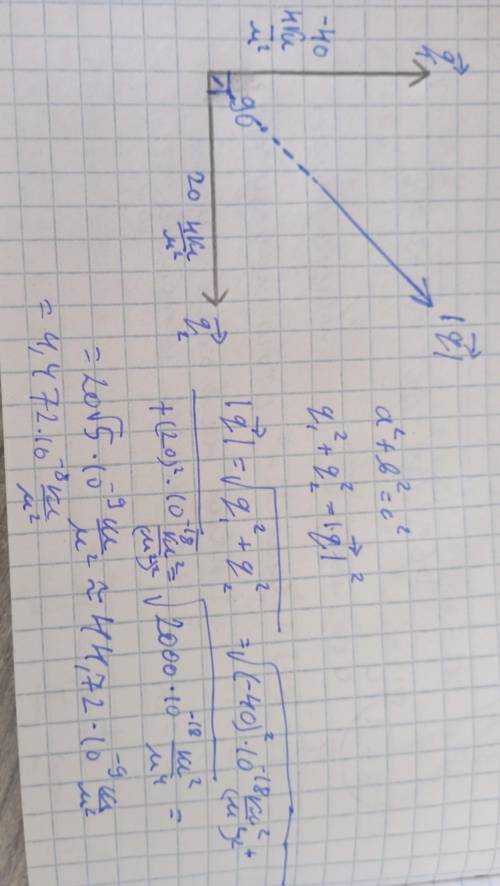 q⃗₁
-40 нКл/м²
90°
|q⃗|
20 нКл/м²
q⃗₂
a² + b² = c²
q₁² + q₂² = |q⃗|²
|q⃗| = √(q₁² + q₂²) = √((-40)² · 10⁻¹⁸ Кл²/(м²)² +
+ (20)² · 10⁻¹⁸ Кл²/(м²)²) = √(2000 · 10⁻¹⁸ Кл²/м⁴) =
= 20√5 · 10⁻⁹ Кл/м² ≈ 44,72 · 10⁻⁹ Кл/м²
= 4,472 · 10⁻⁸ Кл/м²